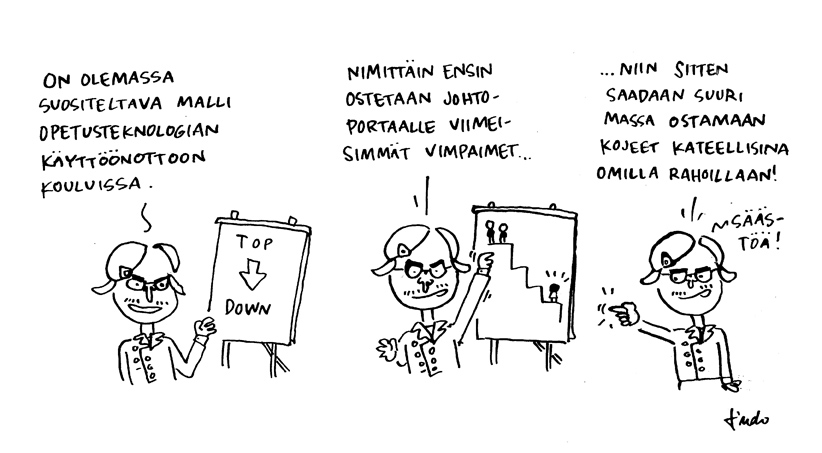 ON OLEMASSA
SUOSITELTAVA MALLI
OPETUSTEKNOLOGIAN
KÄYTTÖÖNOTTOON
KOULUISSA.
TOP
DOWN
NIMITTÄIN ENSIN
OSTETAAN JOHTO-
PORTAALLE VIIMEI-
SIMMÄT VIMPAIMET...
...NIIN SITTEN
SAADAAN SUURI
MASSA OSTAMAAN
KOJEET KATEELLISINA
OMILLA RAHOILLAAN!
SÄÄS-
TÖÄ!